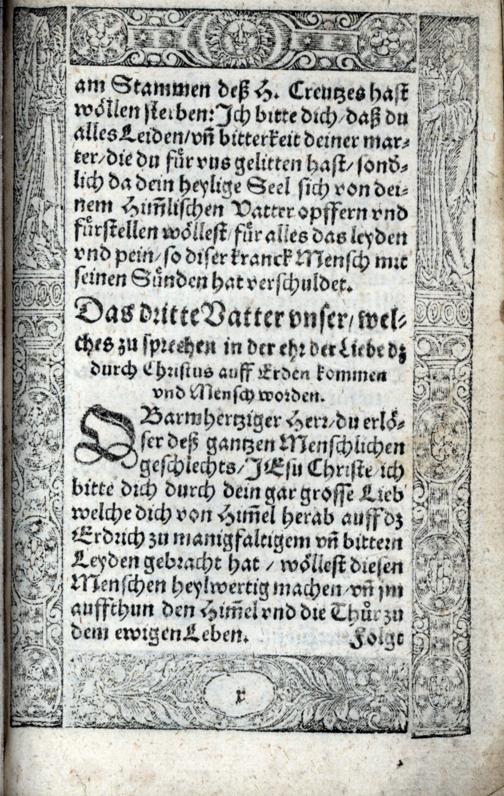 am Stammen deß H. Creutzes hast
wöllen sterben: Jch bitte dich/ daß du
alles Leiden/ vn̄ bitterkeit deiner mar-
ter/ die du für vns gelitten hast/ sond̄-
lich da dein heylige Seel sich von dei-
nem Him̄lischen Vatter opffern vnd
fürstellen wöllest/ für alles das leyden
vnd pein/ so diser kranck Mensch mit
seinen Sünden hat verschuldet.
Das dritte Vatter vnser/ wel-
ches zu sprechen in der ehr der Liebe dz
durch Christus auff Erden kommen
vnd Mensch worden.
O Barmhertziger Herr/ du erlö-
ser deß gantzen Menschlichen
geschlechts/ JEsu Christe/ ich
bitte dich durch dein gar grosse Lieb
welche dich von Him̄el herab auff dz
Erdrich zu manigfaltigem vn̄ bittern
Leyden gebracht hat / wöllest diesen
Menschen heylwertig machen/ vn̄ jm
auffthun den Him̄el vnd die Thür zu
dem ewigen Leben. Folgt
x